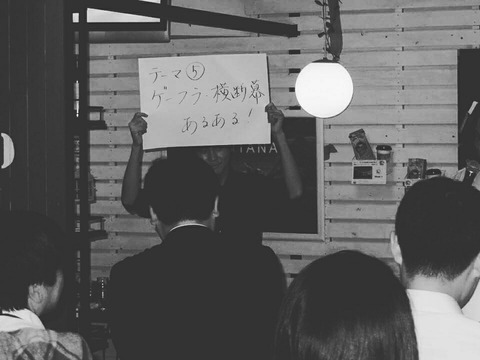 テーマ⑤
ゲーフラ・横断幕
あるある!
TANA